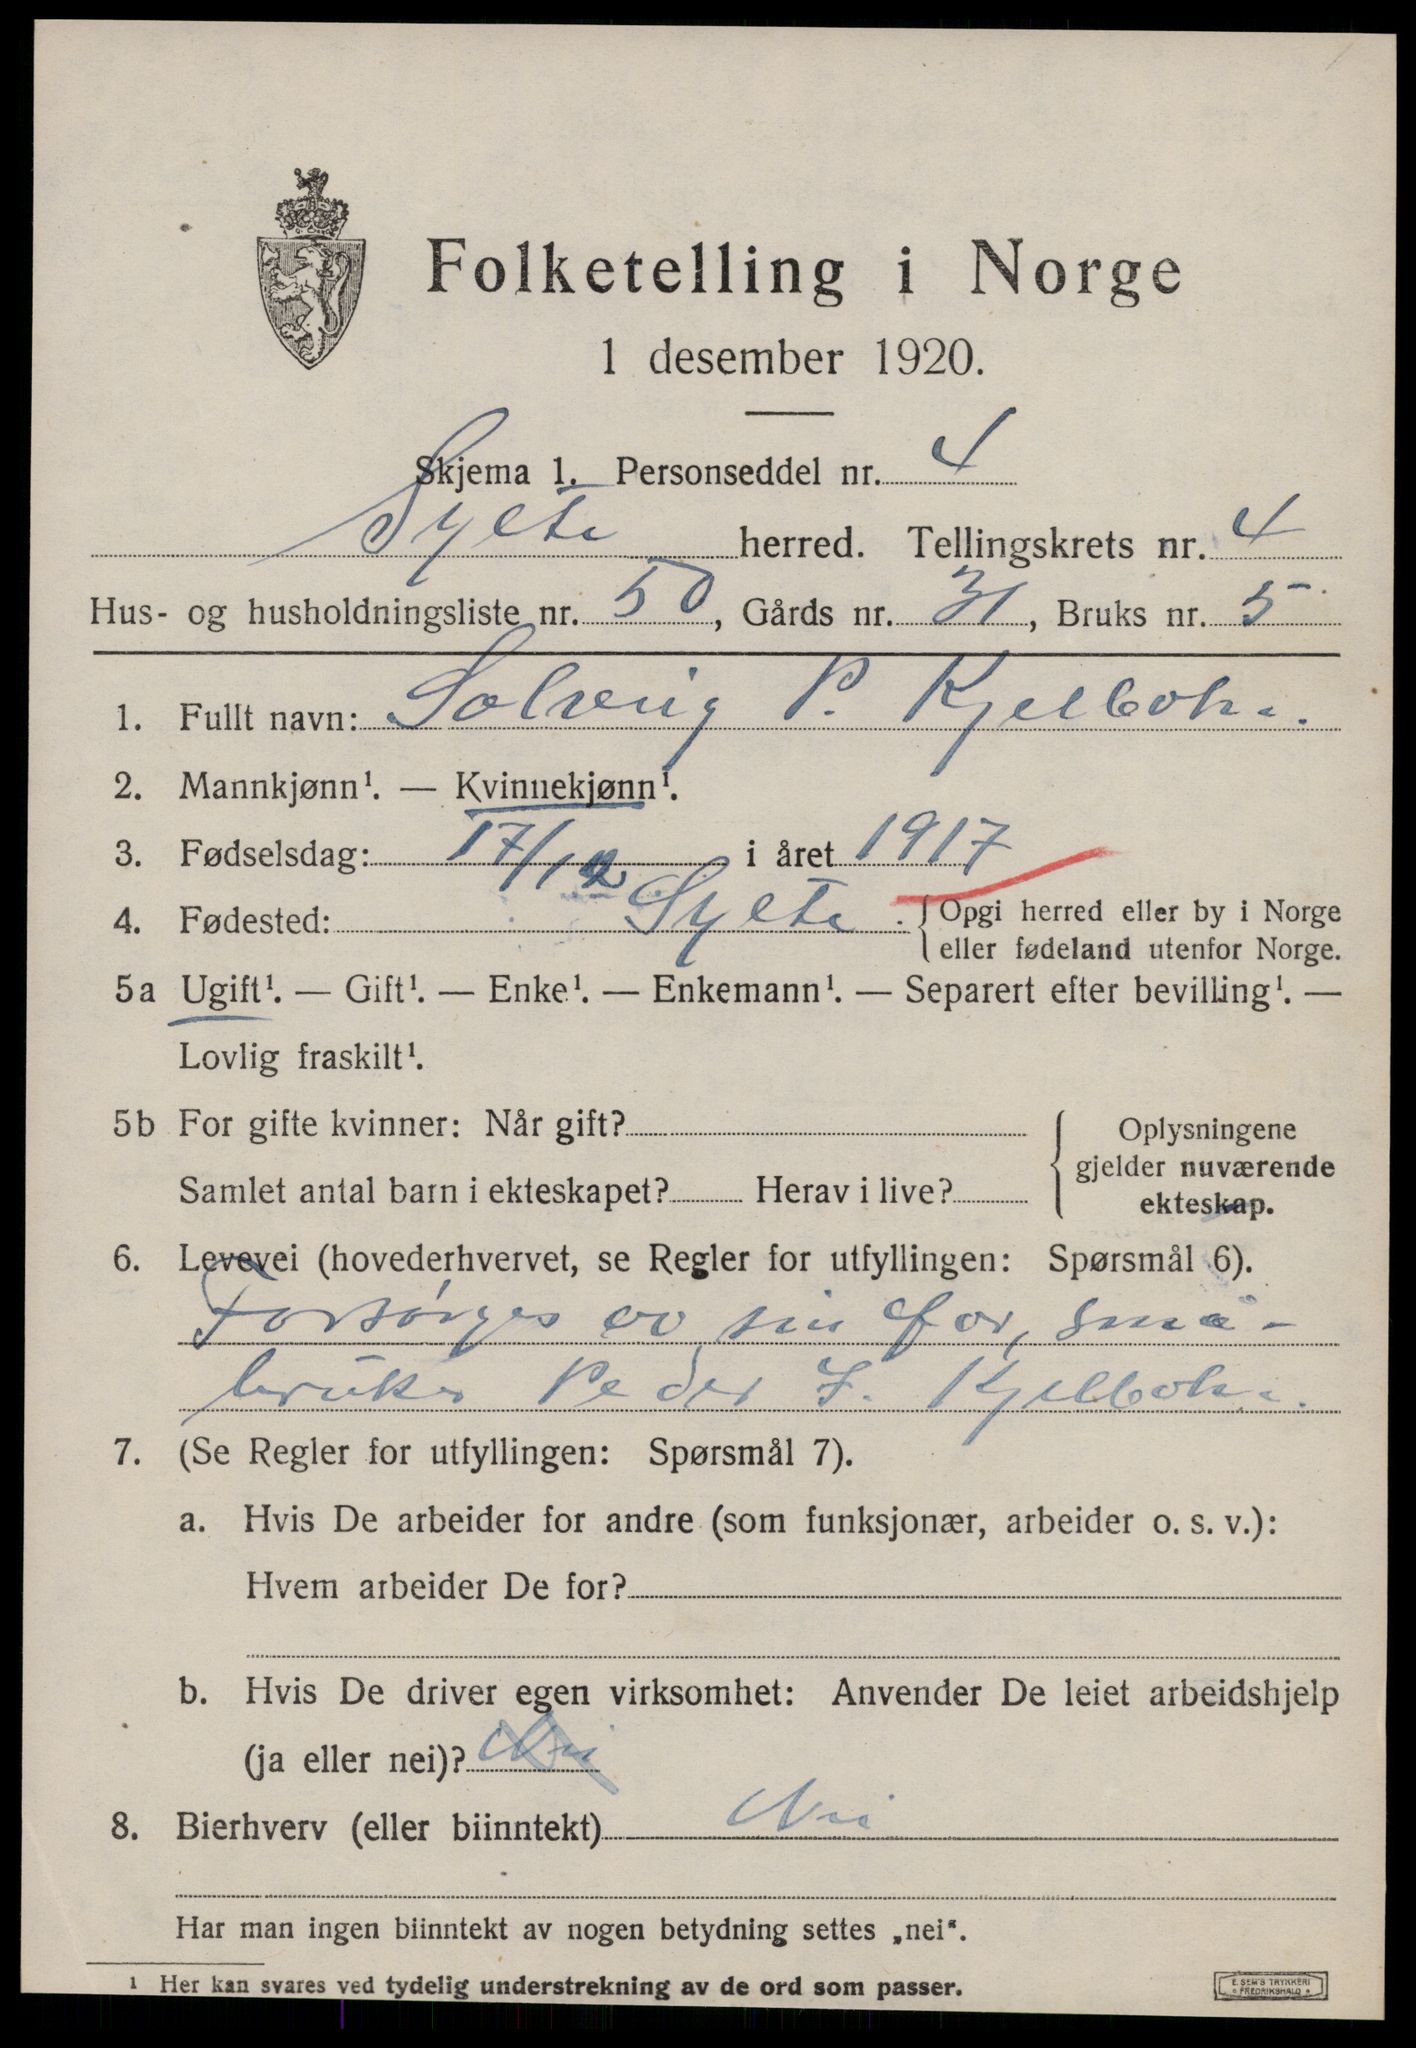 Folketelling i Norge
1 desember 1920.
Skjema 1. Personseddel nr. 4
Sylte herred. Tellingskrets nr. 4
Hus- og husholdningsliste nr. 50, Gårds nr. 31, Bruks nr. 5
1. Fullt navn: Solveig P. Kjelbotn.
2. Mannkjønn¹. — Kvinnekjønn¹.
3. Fødselsdag: 17/12 i året 1917
4. Fødested: Sylte. { Opgi herred eller by i Norge
eller fødeland utenfor Norge.
5a Ugift¹. — Gift¹. — Enke¹. — Enkemann¹. — Separert efter bevilling¹. —
Lovlig fraskilt¹.
5b For gifte kvinner: Når gift? { Oplysningene
gjelder nuværende
Samlet antal barn i ekteskapet? Herav i live?
ekteskap.
6. Levevei (hovederhvervet, se Regler for utfyllingen: Spørsmål 6).
Forsørges av sin far, små-
bruker Peder J. Kjelbotn.
7. (Se Regler for utfyllingen: Spørsmål 7).
a. Hvis De arbeider for andre (som funksjonær, arbeider o. s. v.):
Hvem arbeider De for?
b. Hvis De driver egen virksomhet: Anvender De leiet arbeidshjelp
(ja eller nei)? Nei
8. Bierhverv (eller biinntekt) Nei
Har man ingen biinntekt av nogen betydning settes „nei“.
¹ Her kan svares ved tydelig understrekning av de ord som passer.
E. SEM'S TRYKKERI
* FREDRIKSHALD *